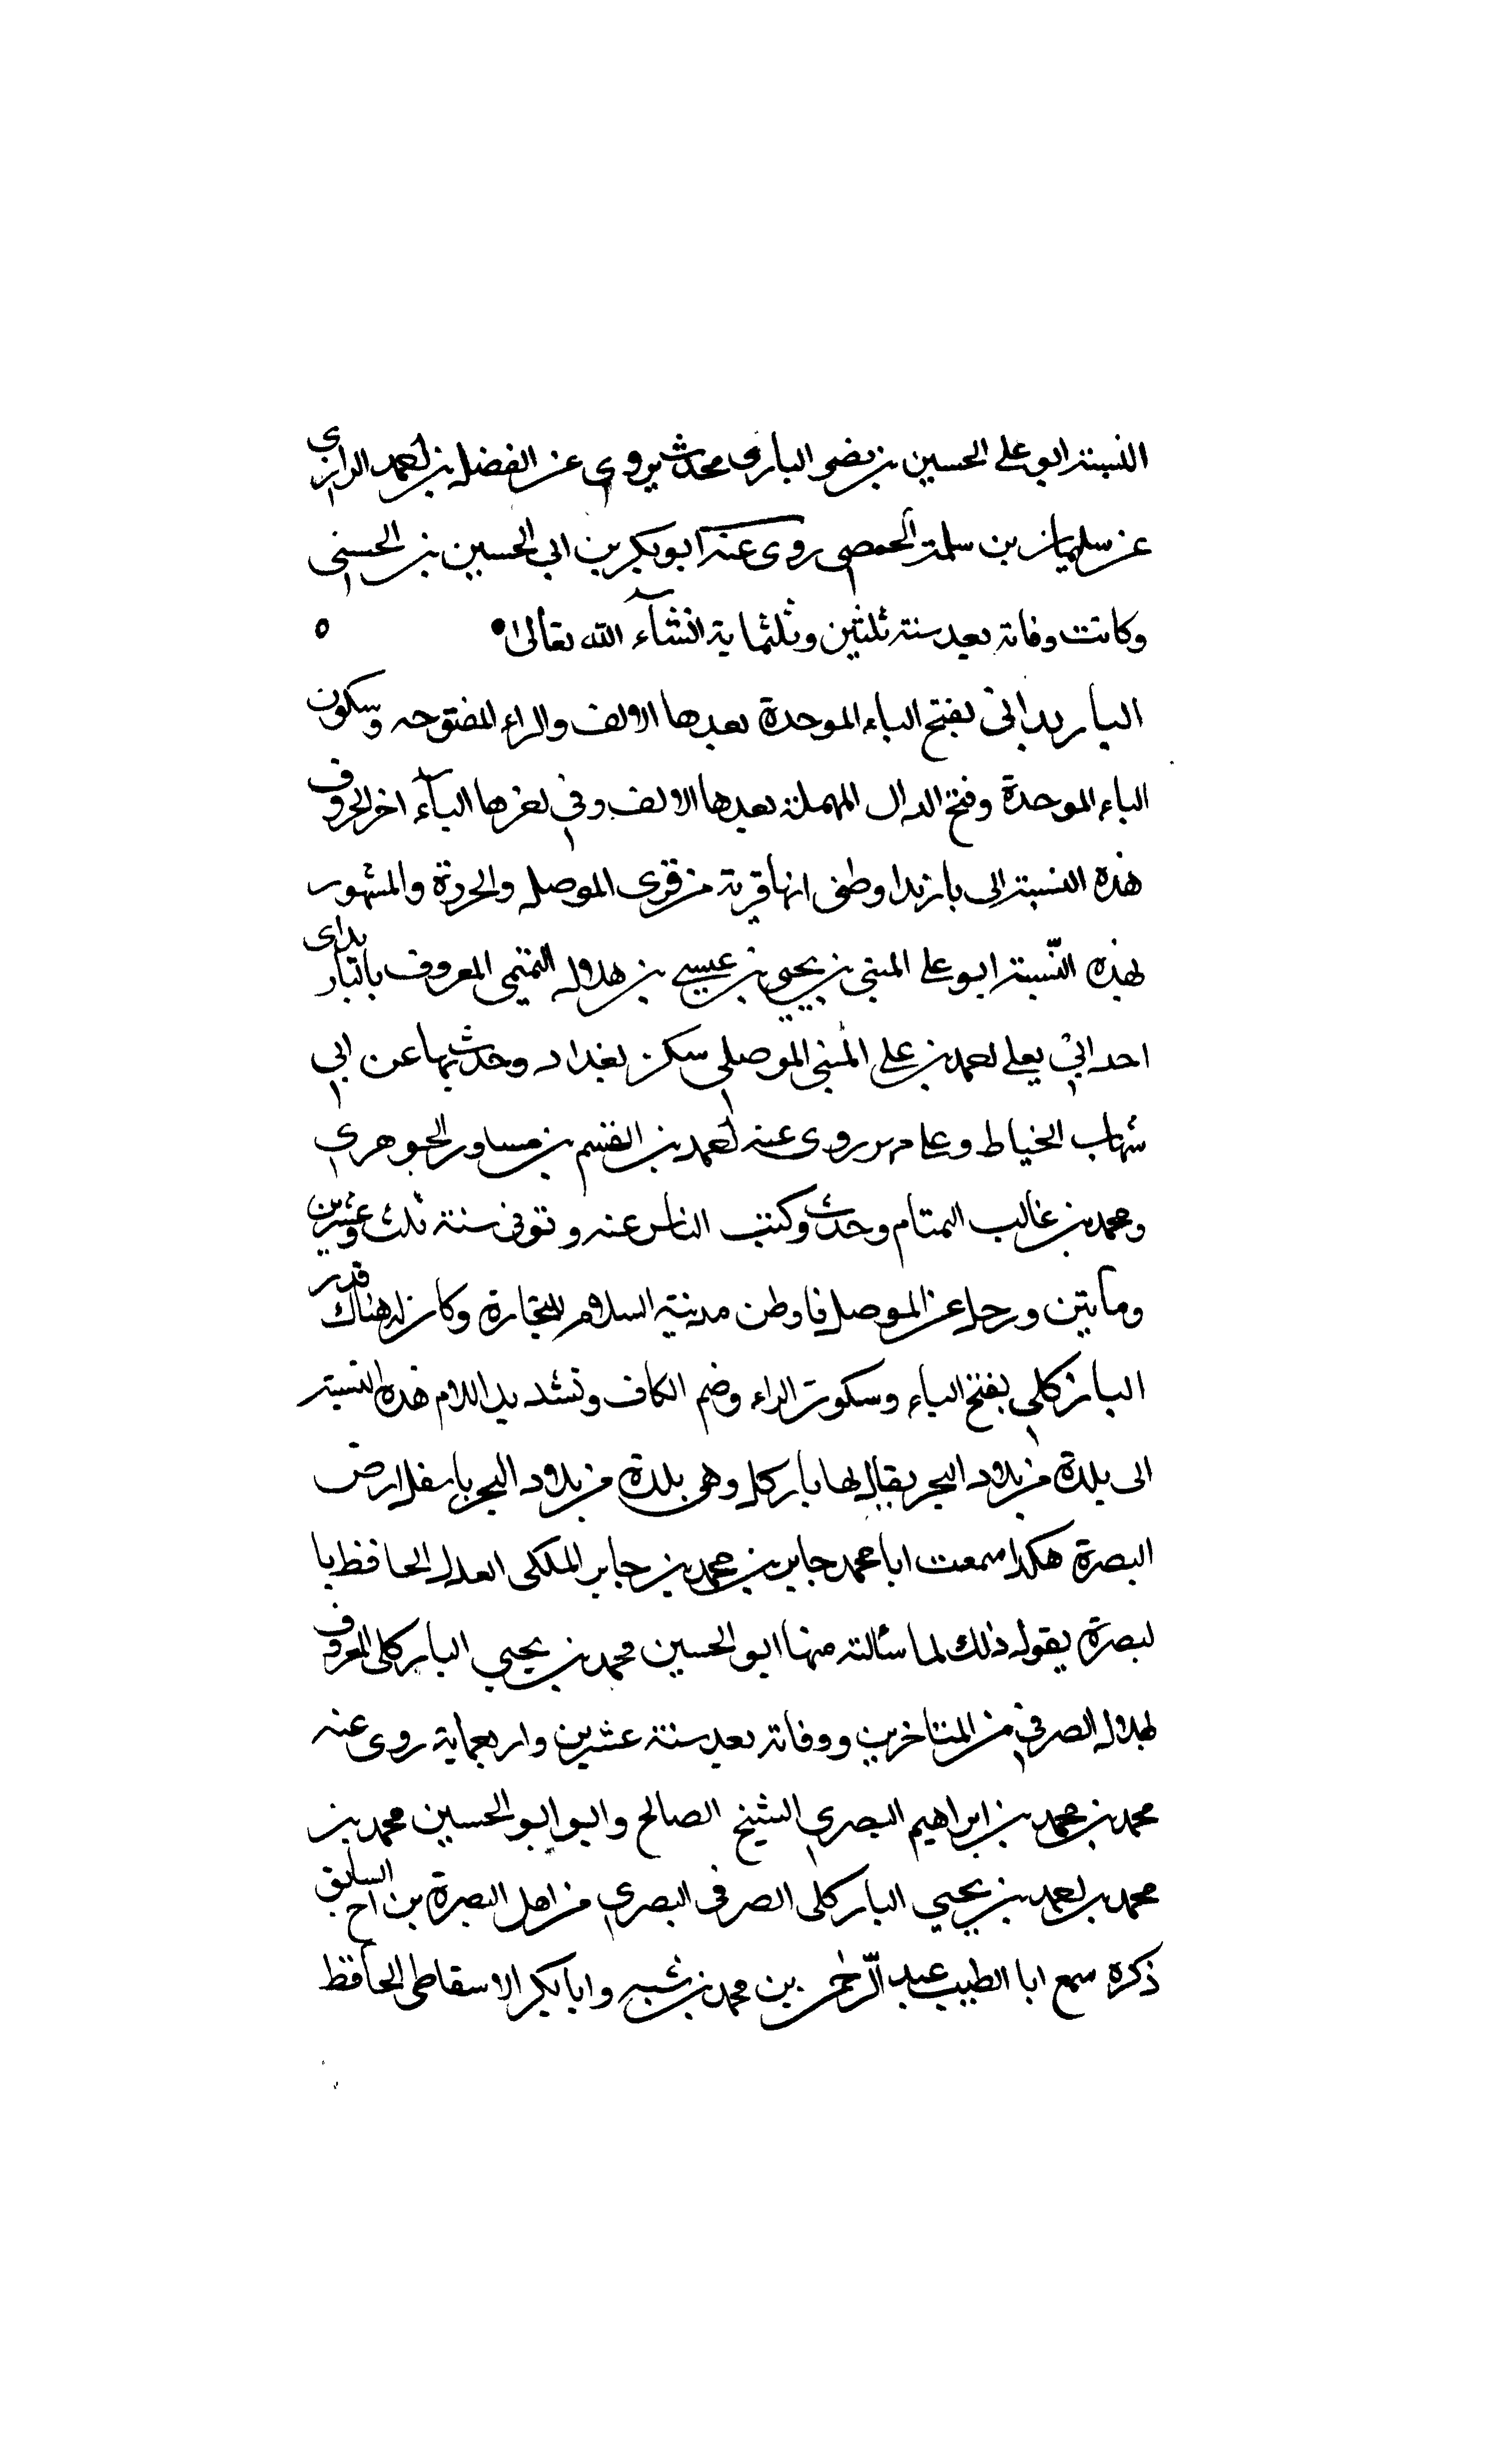 النسبة ابو علي الحسين بن نصر الباري محدث يروي عن الفضل بن احمد الرازي
عن سليمان بن سلمة الحمصي روى عنه ابو بكر بن ابي الحسين بن الحسني
وكانت وفاته بعد سنة ثلثين وثلثماية انشآء الله تعالى
الباربدانى بفتح الباء الموحدة بعدها الالف والراء المفتوحه وسكون
الباء الموحدة وفتح الدال المهملة بعدها الالف وفي اخرها اليآء اخر الحروف
هذه النسبة الى باربدا وظنى انها قرية من قرى الموصل والجزيرة والمشهور
بهذه النّسبة ابو علي المثنى بن يحيى بن عيسى بن هلال التميمي المعروف بالباربداى
احد ابي يعلي احمد بن علي المثنى الموصلي سكن بغداد وحدث بها عن ابي
شهاب الخياط وعامر روى عنه احمد بن القسم بن مساور الجوهري
ومحمد بن غالب التمتام وحدث وكتب الناس عنه وتوفى سنة ثلث وعشرين
ومأتين ورحل عن الموصل فاوطن مدينة السلام للتجارة وكان له هناك قدر
الباركلي بفتح الباء وسكون الراء وضم الكاف وتشديد اللام هذه النسبة
الى بلدة من بلاد البحر يقال لها باركل وهى بلدة من بلاد البحر باسفل ارض
البصرة هكذا سمعت ابا محمد جابر بن محمد بن جابر المالكى العدل الحافظ با
لبصرة يقول ذلك لما سألته منها ابو الحسين محمد بن يحيى الباركلى المعروف
بهلال الصرفي من المتاخرين ووفاته بعد سنة عشرين واربعماية روى عنه
محمد بن محمد بن ابراهيم البصري الشيخ الصالح وابو ابو الحسين محمد بن
محمد بن احمد بن يحيى الباركلى الصرفى البصري من اهل البصرة بن اخ السابق
ذكره سمع ابا الطيب عبد الرّحمن بن محمد بن شيبه وابا بكر الاسقاطى الحافظ